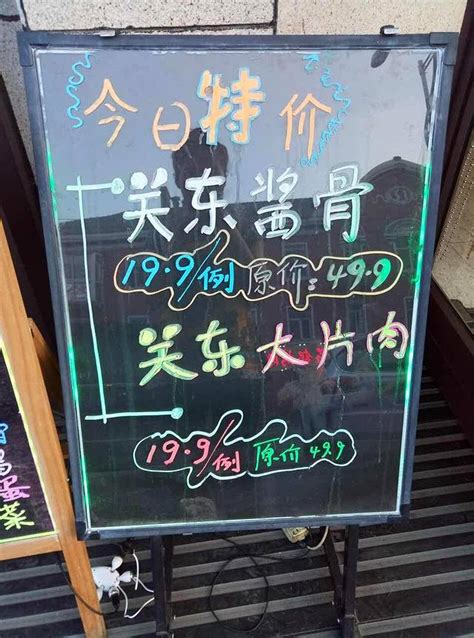 今日特价
关东酱骨
19.9/例 原价：49.9
关东大片肉
19.9/例 原价 49.9
蛋
菜